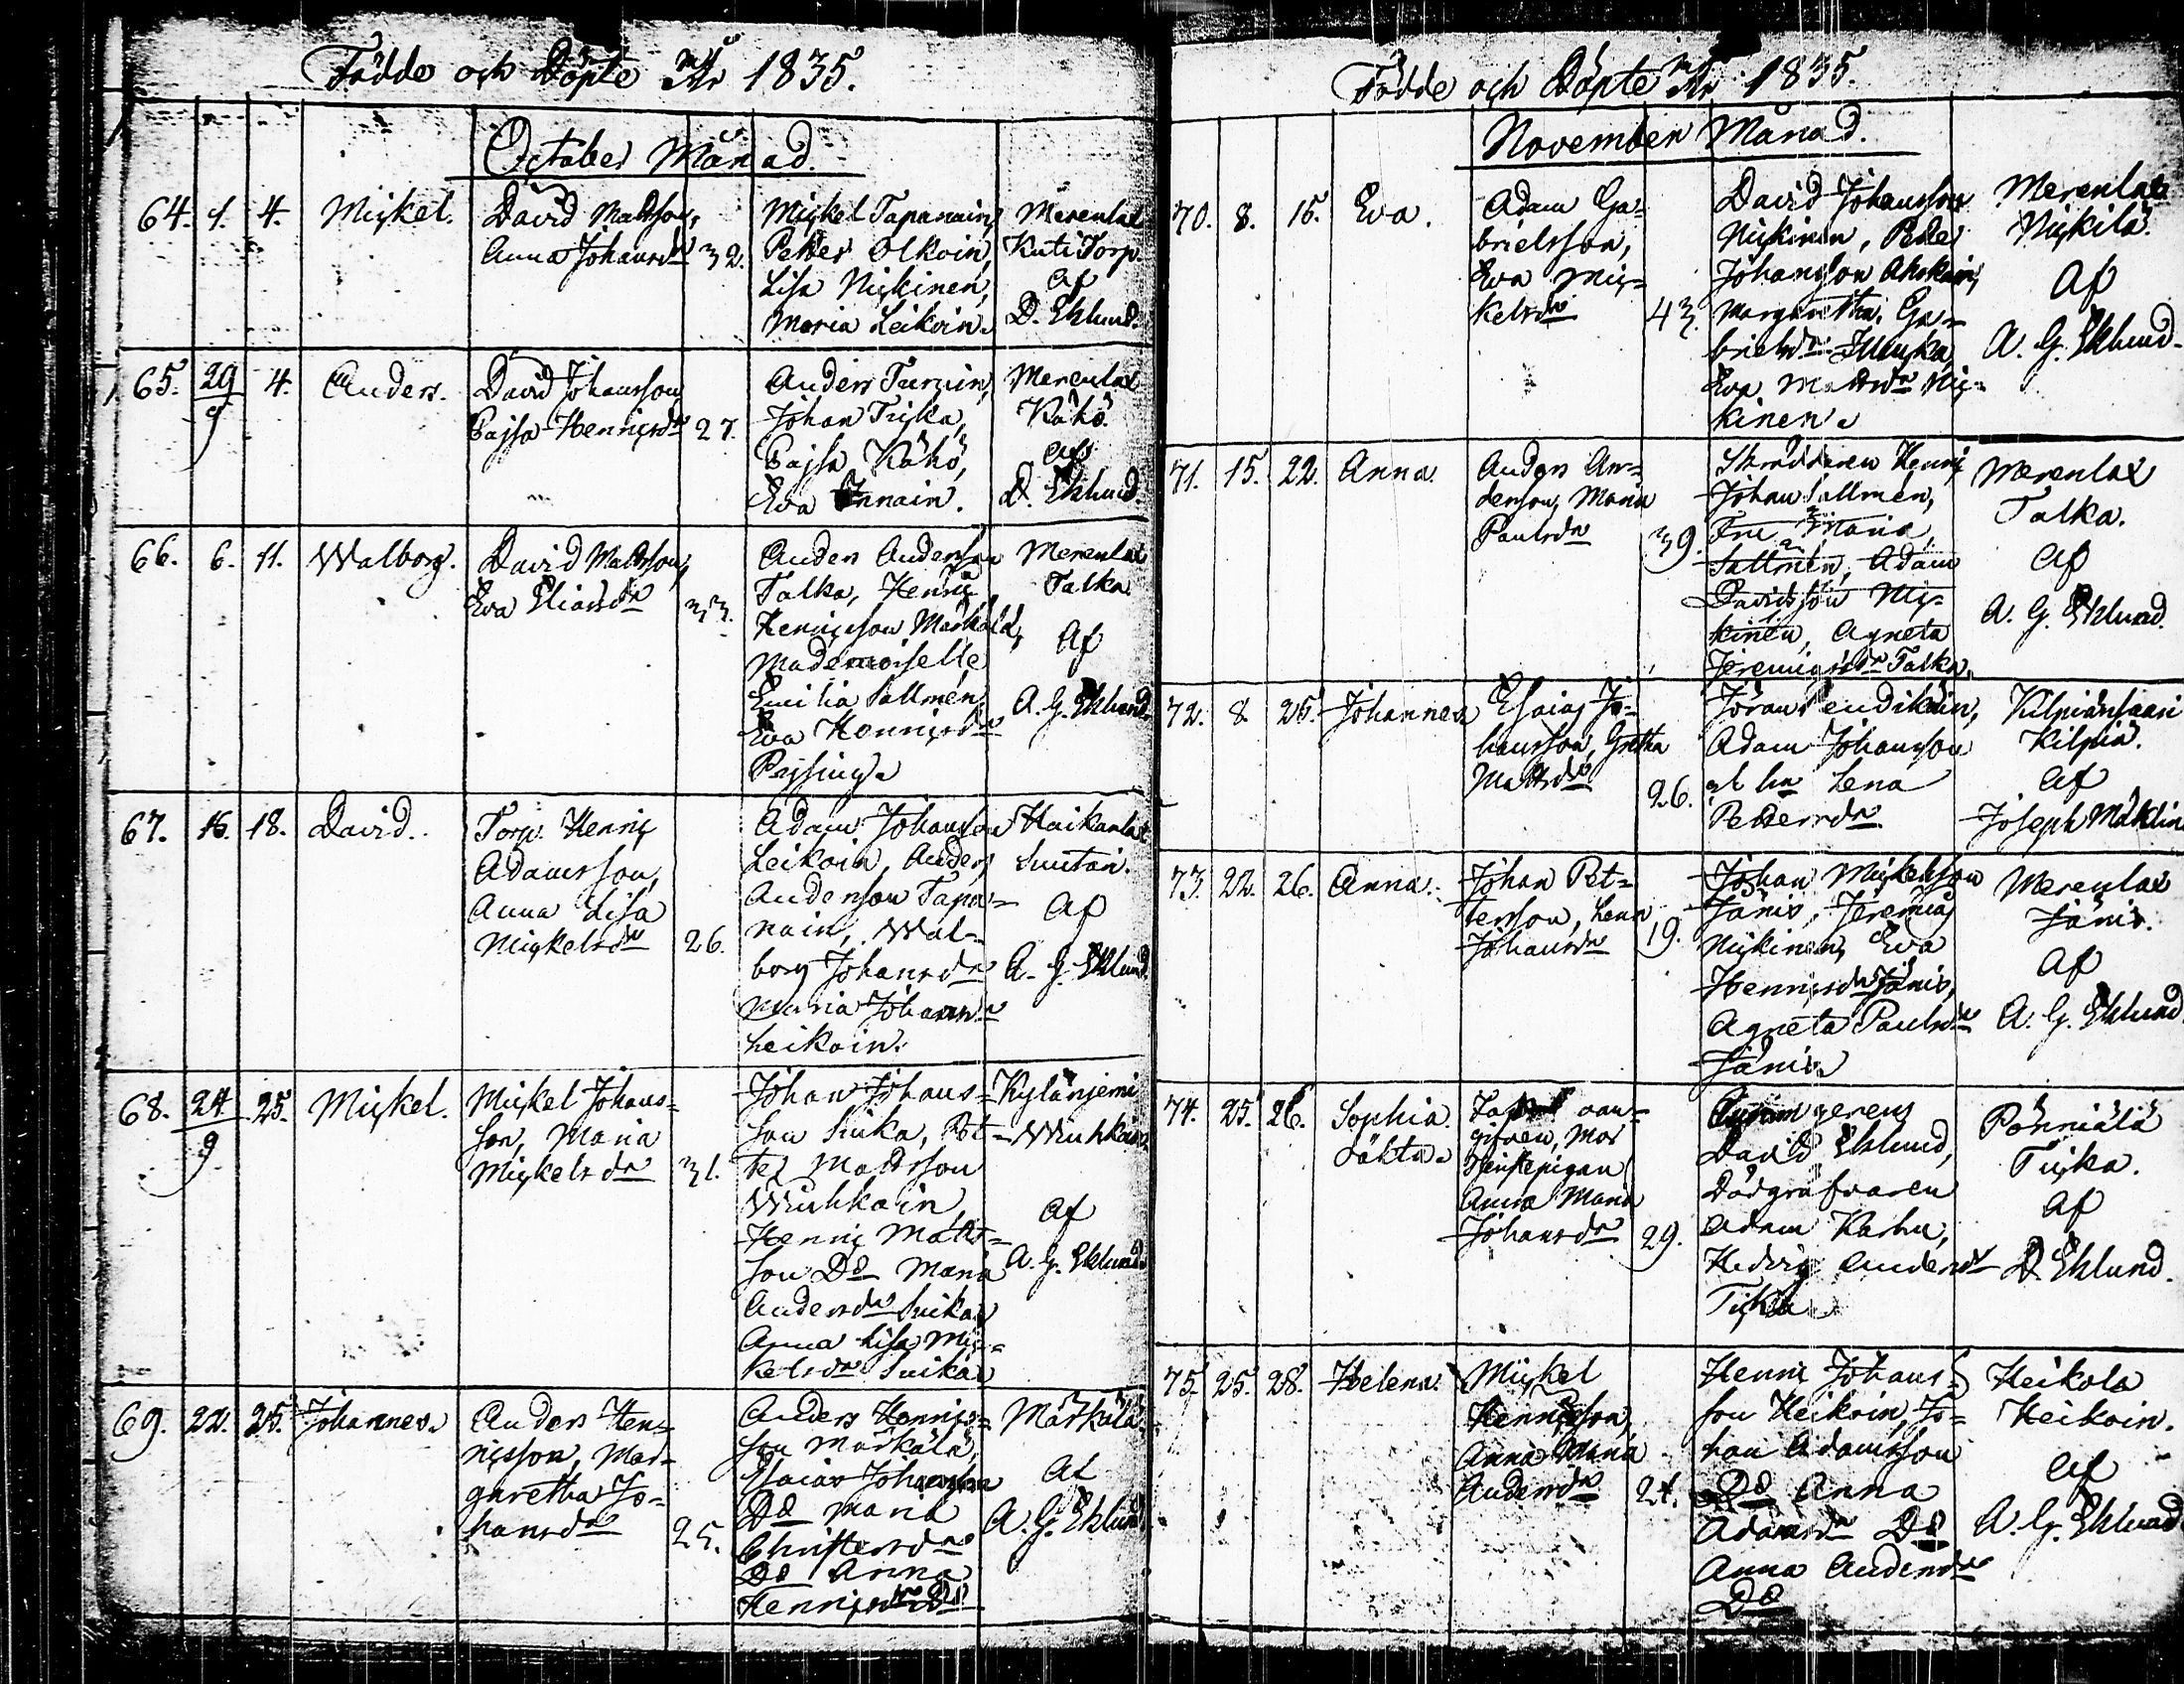 Födde och Döpte År 1835.
October Månad.
64. 1. 4. Mickel. David Mattsson,
Anna Johansdr 32.
Mickel Tapanain,
Petter Olkoin,
Lisa Nickinen,
Maria Leikoin.
Merenlax
Kuti Torp
Af
D. Eklund.
65. 29/9 4. Anders. David Johansson,
Cajsa Henricsdr 27.
Anders Turuin,
Johan Tujka,
Cajsa Kähö,
Eva Innain.
Merenlax
Kähö.
Af
D. Eklund.
66. 6. 11. Walborg. David Mattsson,
Eva Eliasdr 33.
Anders Andersson
Talka, Henric
Henricsson Märkälä,
Mademoiselle
Emilia Sallmén,
Eva Henricsdr
Merenlax
Talka
Af
A. G. Eklund.
67. 16. 18. David. Torp. Henric
Adamsson,
Anna Lisa
Mickelsdr 26.
Adam Johansson
Leikoin, Anders
Andersson Tapa=
nain, Wal=
borg Johansdr
Maria Johansdr
Leikoin.
Haikanlax
Suutari.
Af
A. G. Eklund.
68. 24/9 25. Mickel. Mickel Johans=
son, Maria
Mickelsdr 31.
Johan Johans=
son Suika, Pet=
ter Mattsson
Wiuhkoin,
Henric Matts=
son Do Maria
Andersdr Suika,
Anna Lisa Mic=
kelsdr Suika
Kylänjemi
Wiuhkoin
Af
A. G. Eklund.
69. 22. 25. Johannes. Anders Hen=
ricsson, Mar=
garetha Jo=
hansdr 25.
Anders Henrics=
son Märkälä,
Esaias Johansson
Do Maria
Christersdr
Do Anna
Henricsdr Do
Märkälä
Af
A. G. Eklund
Födde och Döpte År 1835.
November Månad.
70. 8. 15. Eva. Adam Ga=
brielsson,
Eva Mic=
kelsdr 43.
David Johansson
Nickinen, Petter
Johansson
Margaretha Ga=
brielsdr
Eva Mattsdr Nic=
kinen.
Merenlax
Nickilä.
Af
A. G. Eklund.
71. 15. 22. Anna. Anders An=
dersson, Maria
Paulsdr 39.
Skräddaren Henric
Johan Sallmén,
Fru Maria
Sallmén, Adam
Davidsson Nic=
kinen, Agneta
Jeremiasdr Talka.
Merenlax
Talka.
Af
A. G. Eklund.
72. 8. 25. Johannes. Esaias Jo=
hansson, Gretha
Mattsdr 26.
Jöran Pendikäin,
Adam Johansson
Lena
Pettersdr
Kilpiänsaari
Kilpiä.
Af
Joseph Mäklin
73. 22. 26. Anna. Johan Pet=
tersson, Lena
Johansdr 19.
Johan Mickelsson
Jänis, Jeremias
Nickinen, Eva
Henricsdr Jänis,
Agneta Paulsdr
Jänis.
Merenlax
Jänis.
Af
A. G. Eklund
74. 25. 26. Sophia.
Oäkta.
gifven, Mor
Hustepigan
Anna Maria
Johansdr 29.
David Eklund,
Dödgräfvaren
Adam Karhu,
Hedvig Andersdr
Tujka
Ponniälä
Tujka.
Af
D. Eklund.
75. 25. 28. Helena. Mickel
Henricsson,
Anna Maria
Andersdr 24.
Henric Johans=
son Heikoin, Jo=
han Adamsson
Do Anna
Adamsdr Do
Anna Andersdr
Do
Heikola
Heikoin.
Af
A. G. Eklund